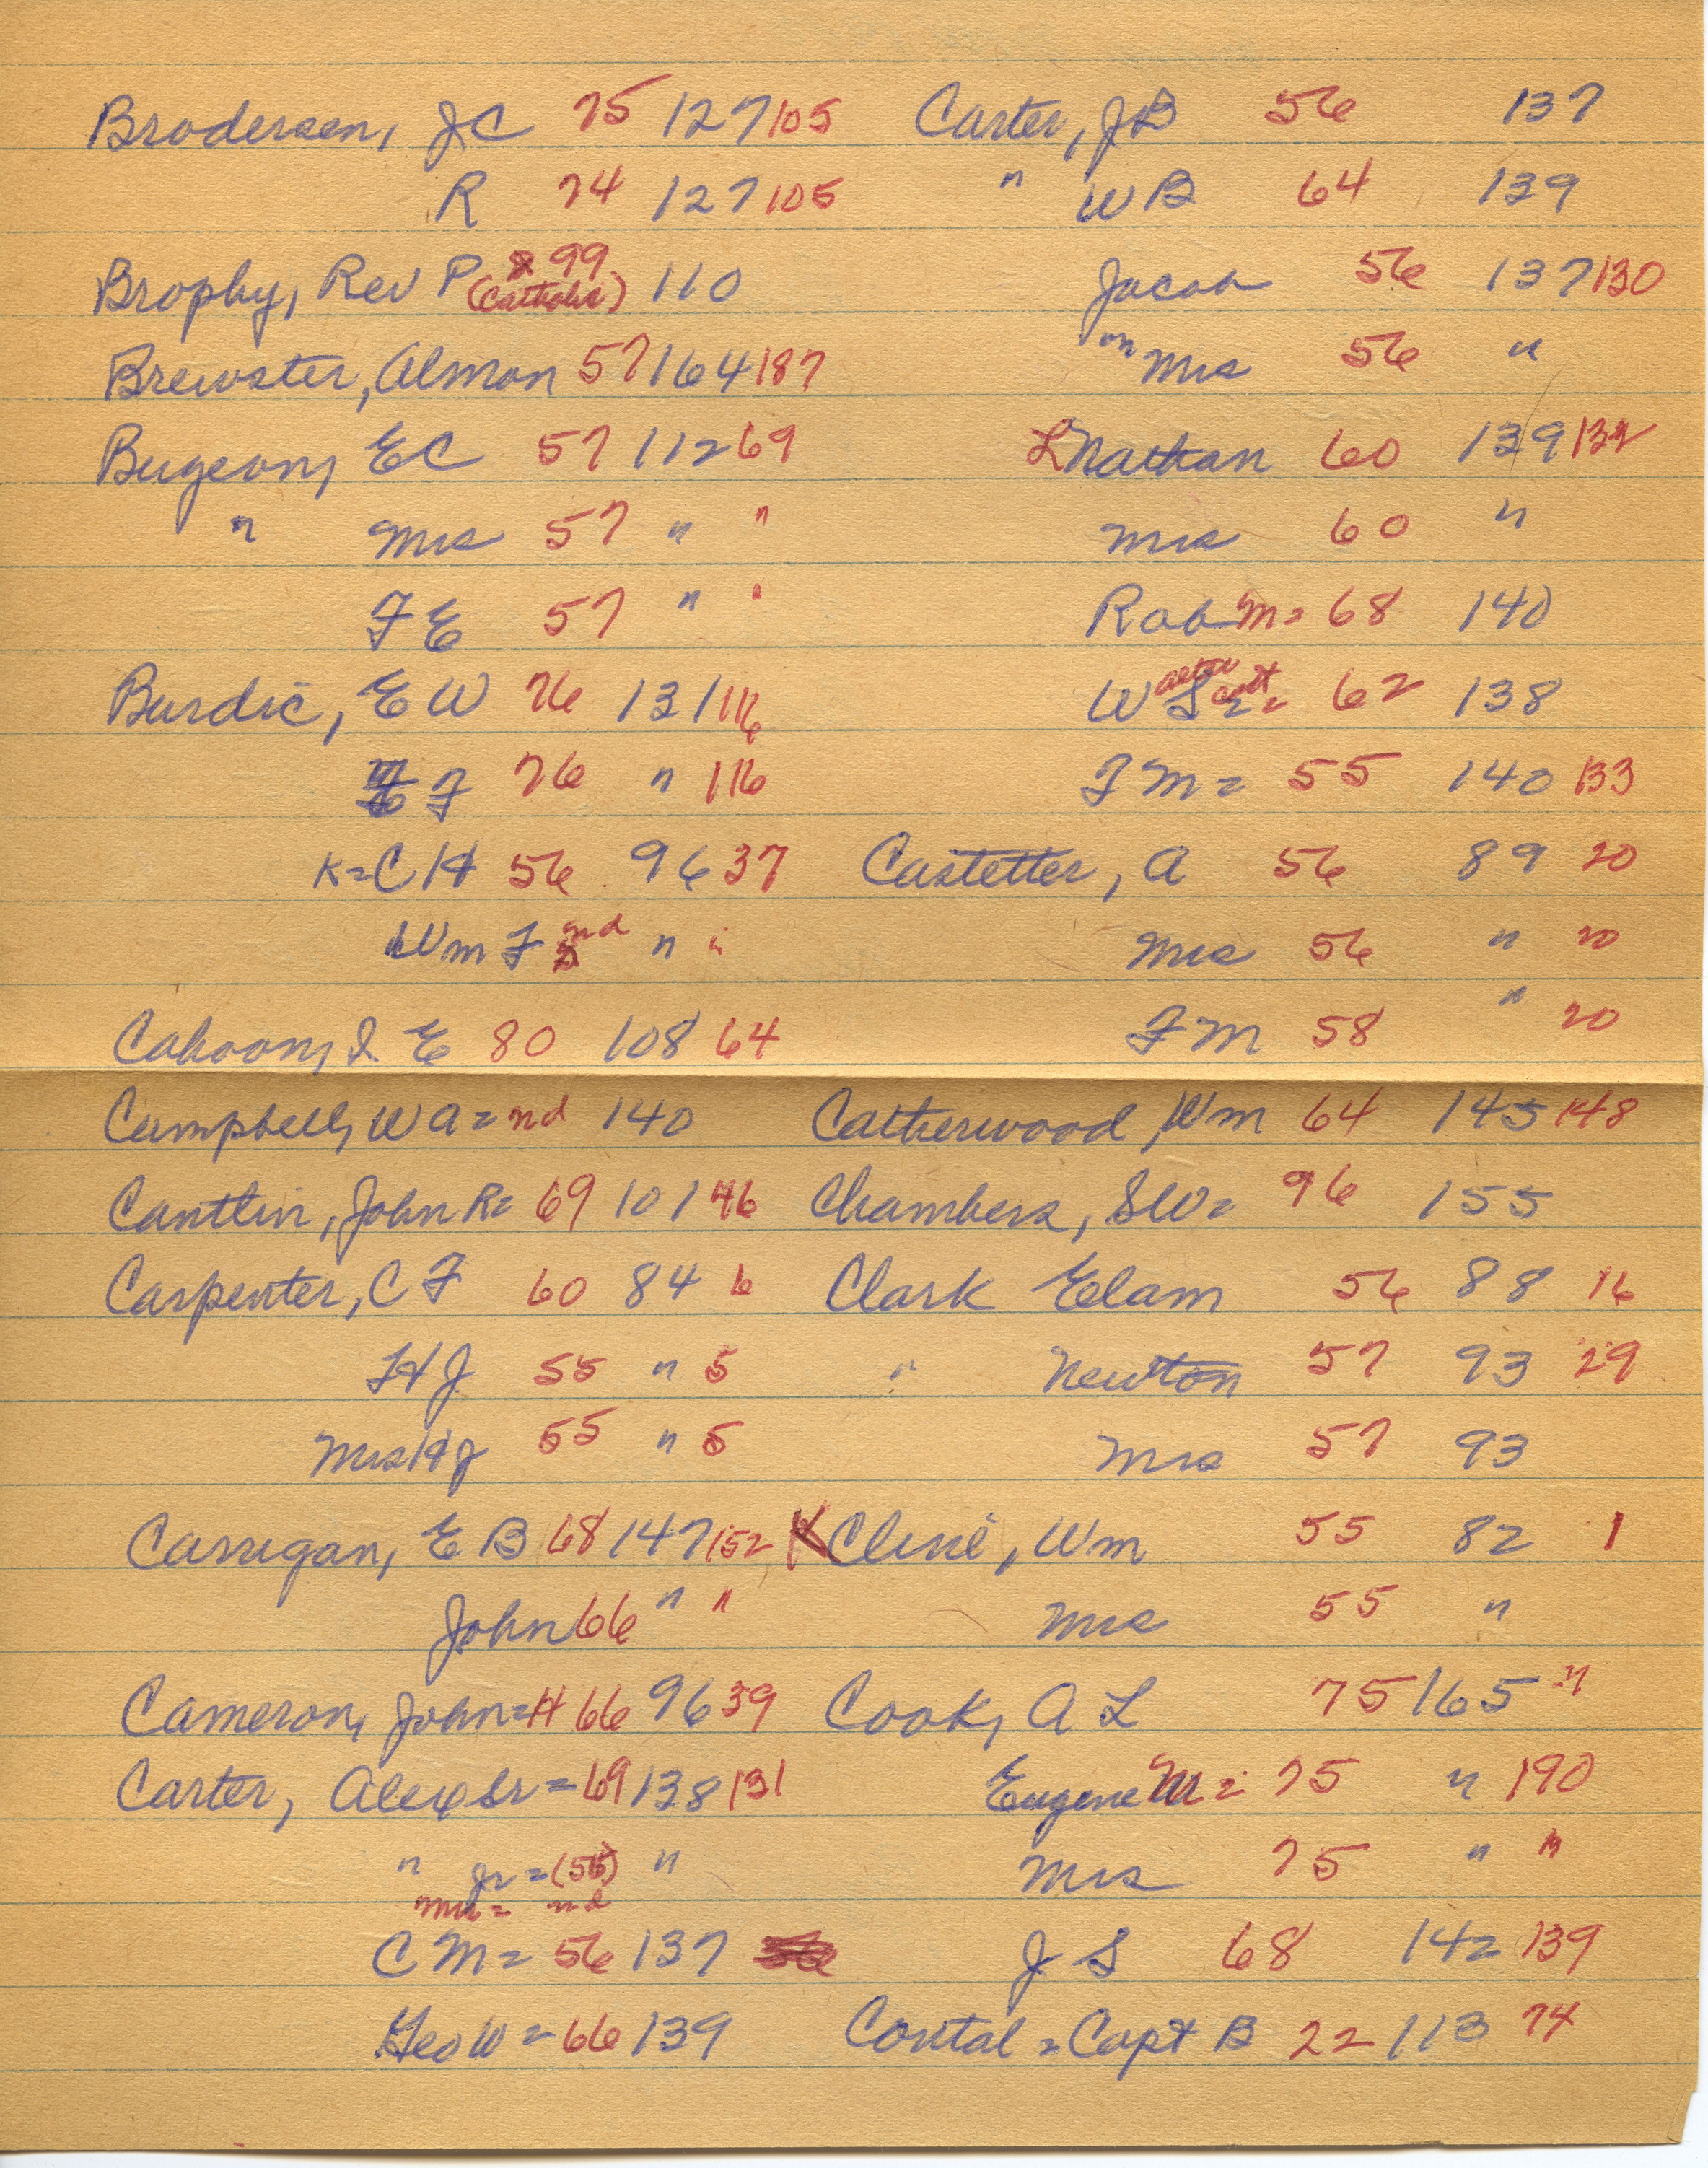 Brodersen, JC 75 127 105
R 74 127 105
Brophy, Rev P 99 (Catholic) 110
Brewster, Almon 57 164 187
Bugeon, EC 57 112 69
" Mrs 57 " "
F E 57 " "
Burdic, E W 76 131 116
F 76 " 116
K=C H 56 96 37
Wm F nd " "
Cahoon, I E 80 108 64
Campbell, W A = nd 140
Cantlin, John R = 69 101 46
Carpenter, C F 60 84 6
H J 55 " 5
Mrs H J 55 " 5
Carrigan, E B 68 147 152
John 66 " "
Cameron, John = H 66 96 39
Carter, Alex Sr = 69 138 131
" Jr = (55) "
Mrs = nd
C M = 56 137
Geo W = 66 139
Carter, JB 56 137
" W B 64 139
Jacob 56 137 130
" Mrs 56 "
L Nathan 60 139 132
Mrs 60 "
Rob M = 68 140
W S = 62 138
F M = 55 140 133
Castetter, A 56 89 20
Mrs 56 " 20
F M 58 " 20
Catherwood, Wm 64 145 148
Chambers, S W = 96 155
Clark Elam 56 88 16
" Newton 57 93 29
Mrs 57 93
K Cline, Wm 55 82 1
Mrs 55 "
Cook, A L 75 165 "
Eugene M = 75 " 190
Mrs 75 " "
J S 68 142 139
Contal = Capt B 22 113 74